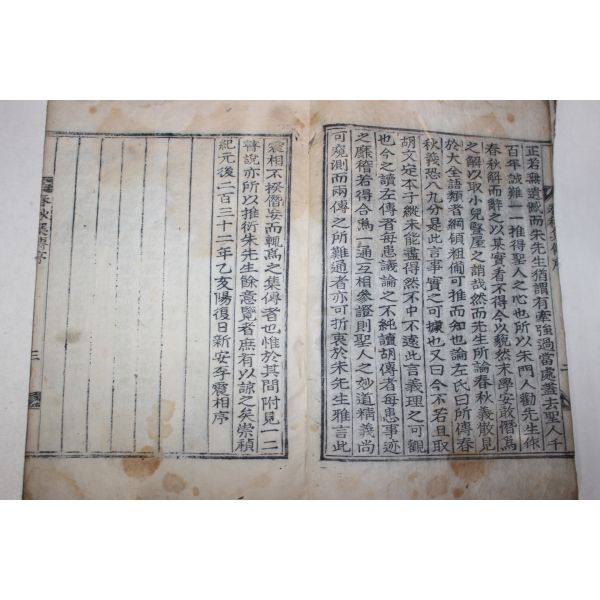 正若無遺憾而朱先生猶謂有牽強過當處蓋去聖人千
百年誠難一一推得聖人之心也所以朱門人勸先生作
春秋解而辭之以某實看不得今以藐然末學安敢僭爲
之解以取小兒竪屋之誚哉然而先生所論春秋義散見
於大全語類者綱領粗備可推而知也論左氏曰所傳春
秋義恐八九分是此言事實之可據也又曰今不若且取
胡文定本子縱未能盡得然不中不遠此言義理之可觀
也今之讀左傳者每患議論之不純讀胡傳者每患事迹
之靡稽若得合爲一通互相參證則聖人之妙道精義尚
可窺測而兩傳之所難通者亦可折衷於朱先生雅言此
震相不揆僭妄而輒爲之集傳者也惟於其間附見一二
瞽說亦所以推衍朱先生餘意覽者庶有以諒之矣崇禎
紀元後二百三十二年乙亥陽復日新安李震相序
春秋集傳序
三
二